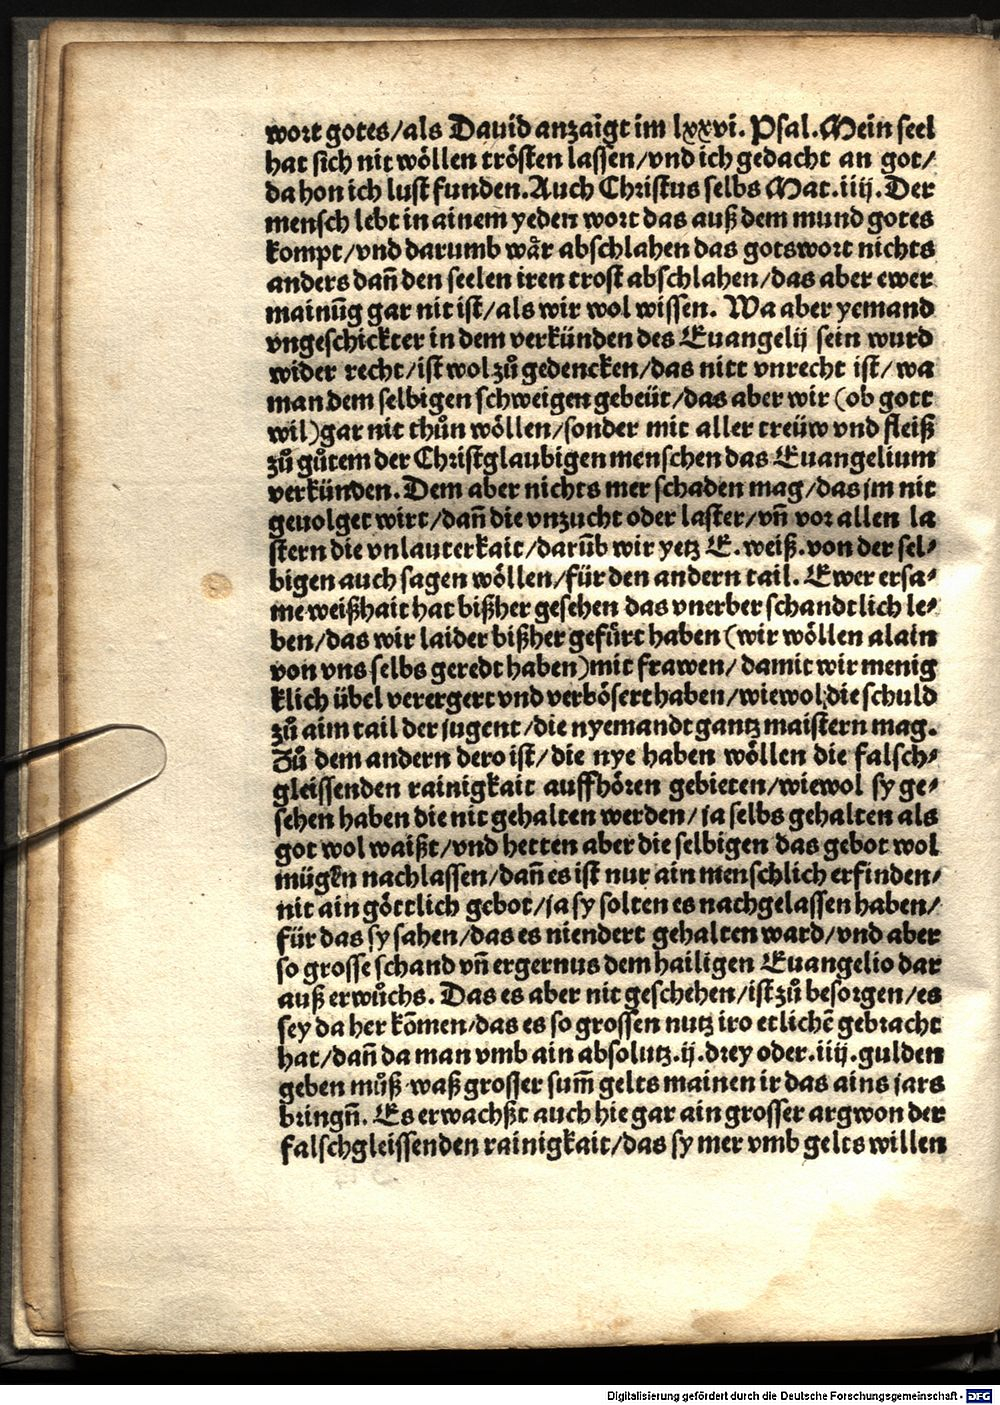 wort gotes/als Dauid anzaigt im lxxvi. Psal. Mein seel
hat sich nit wöllen trösten lassen/vnd ich gedacht an got/
da hon ich lust funden. Auch Christus selbs Mat. iiij. Der
mensch lebt in ainem yeden wort das auß dem mund gotes
kompt/vnd darumb wår abschlahen das gotswort nichts
anders dañ den seelen iren trost abschlahen/das aber ewer
mainũg gar nit ist/als wir wol wissen. Wa aber yemand
vngeschickter in dem verkünden des Euangelij sein wurd
wider recht/ist wol zů gedencken/das nitt vnrecht ist/wa
man dem selbigen schweigen gebeüt/das aber wir (ob gott
wil) gar nit thůn wöllen/sonder mit aller treüw vnd fleiß
zů gůtem der Christglaubigen menschen das Euangelium
verkünden. Dem aber nichts mer schaden mag/das jm nit
geuolget wirt/dañ die vnzucht oder laster/vñ vor allen la
stern die vnlauterkait/darũb wir yetz E. weiß. von der sel⸗
bigen auch sagen wöllen/für den andern tail. Ewer ersa⸗
me weißhait hat bißher gesehen das vnerber schandtlich le⸗
ben/das wir laider bißher gefürt haben (wir wöllen alain
von vns selbs geredt haben) mit frawen/damit wir menig
klich übel verergert vnd verbösert haben/wiewol die schuld
zů aim tail der jugent/die nyemandt gantz maistern mag.
Zů dem andern dero ist/die nye haben wöllen die falsch⸗
gleissenden rainigkait auffhören gebieten/wiewol sy ge⸗
sehen haben die nit gehalten werden/ja selbs gehalten als
got wol waißt/vnd hetten aber die selbigen das gebot wol
mügen nachlassen/dañ es ist nur ain menschlich erfinden/
nit ain göttlich gebot/ja sy solten es nachgelassen haben/
für das sy sahen/das es niendert gehalten ward/vnd aber
so grosse schand vñ ergernus dem hailigen Euangelio dar
auß erwůchs. Das es aber nit geschehen/ist zů besorgen/es
sey da her kõmen/das es so grossen nutz iro etlichẽ gebracht
hat/dañ da man vmb ain absolutz. ij. drey oder. iiij. gulden
geben můß waß grosser sum̃ gelts mainen ir das ains jars
bringñ. Es erwachßt auch hie gar ain grosser argwon der
falschgleissenden rainigkait/das sy mer vmb gelts willen
Digitalisierung gefördert durch die Deutsche Forschungsgemeinschaft - DFG